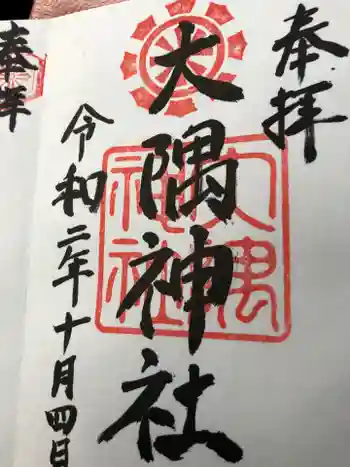 奉拝
大隅神社
大隅神社
令和二年十月四日
奉拝